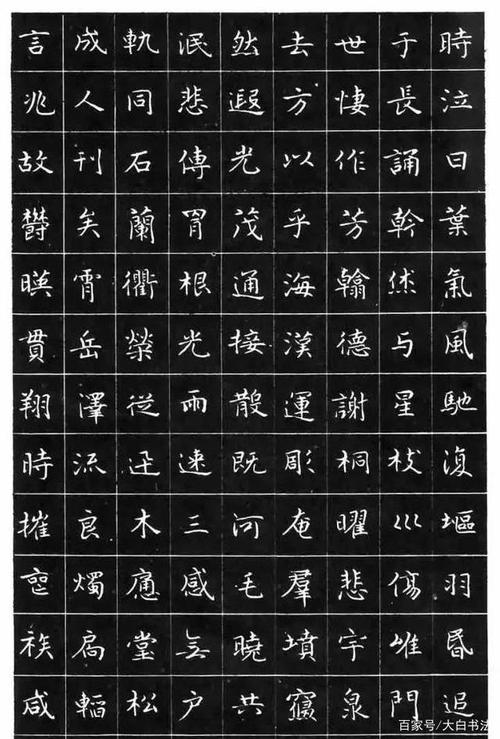 言成軌泯然去世于時
兆人同悲遐方悽長泣
故刊石傳光以作誦曰
欝矣蘭胃茂乎芳幹葉
暎霄衢根通海翰烋氣
貫岳榮光接漢德与風
翔澤從雨散運謝星馳
時流迅速既彫桐枝復
摧良木三河奄曜巛塸
燭慟感毛羣悲傷羽
族扃堂無曉墳宇唯昏
咸松戶共門泉追
百家号/大白书法